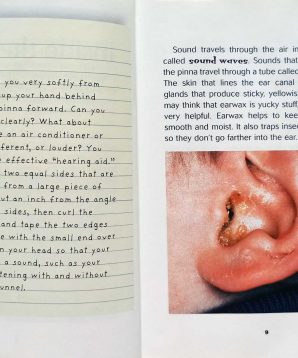 you very softly from
up your hand behind
pinna forward. Can you
clearly? What about
e an air conditioner or
fferent, or louder? You
e effective "hearing aid."
two equal sides that are
from a large piece of
ut an inch from the angle
sides, then curl the
and tape the two edges
e with the small end over
n your head so that your
a sound, such as your
tening with and without
unnel.
Sound travels through the air in
called sound waves. Sounds that
the pinna travel through a tube called
The skin that lines the ear canal
glands that produce sticky, yellowis
may think that earwax is yucky stuff,
very helpful. Earwax helps to keep
smooth and moist. It also traps insec
so they don't go farther into the ear.
9